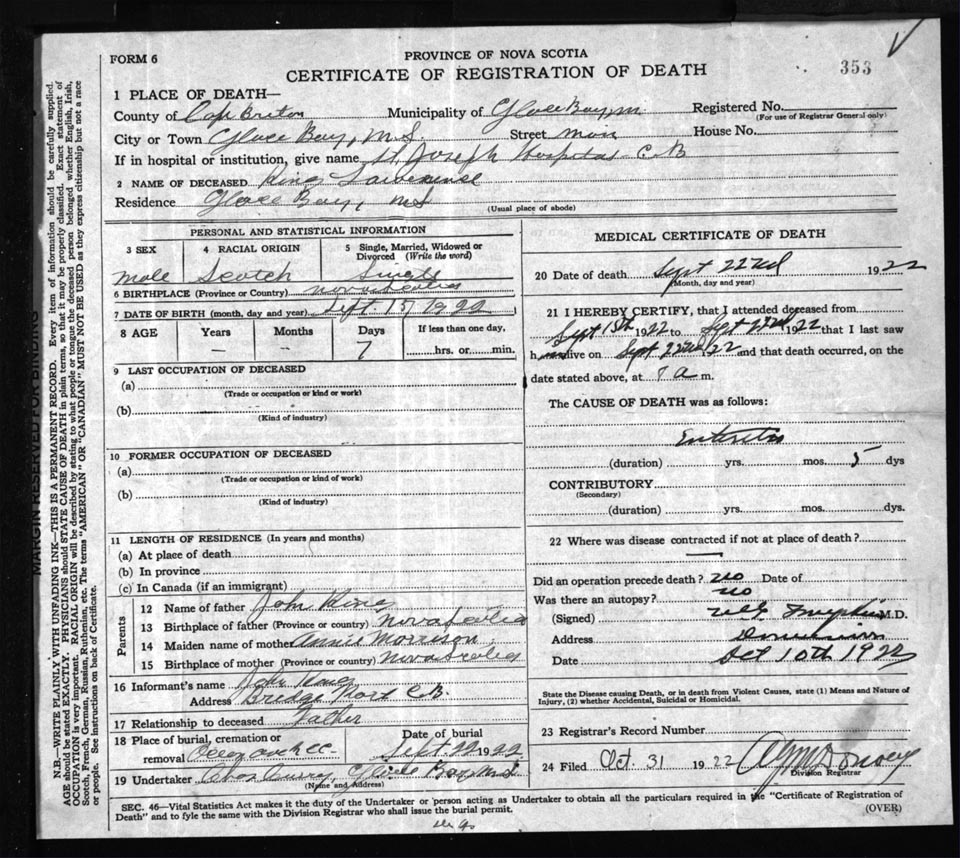 FORM 6
PROVINCE OF NOVA SCOTIA
CERTIFICATE OF REGISTRATION OF DEATH
353
1 PLACE OF DEATH—
County of Cape Breton Municipality of Glace Bay, Registered No.
(For use of Registrar General only)
City or Town Glace Bay, N.S. Street Main House No.
If in hospital or institution, give name St. Joseph Hospital C.B
2 NAME OF DECEASED King Lawrence
Residence Glace Bay, NS
(Usual place of abode)
PERSONAL AND STATISTICAL INFORMATION
3 SEX 4 RACIAL ORIGIN 5 Single, Married, Widowed or Divorced (Write the word)
male Scotch Single
6 BIRTHPLACE (Province or Country) Nova Scotia
7 DATE OF BIRTH (month, day and year) Sept 15 1922
8 AGE Years Months Days If less than one day,
— — 7 hrs. or min.
9 LAST OCCUPATION OF DECEASED
(a)
(Trade or occupation or kind or work)
(b)
(Kind of industry)
10 FORMER OCCUPATION OF DECEASED
(a)
(Trade or occupation or kind of work)
(b)
(Kind of industry)
11 LENGTH OF RESIDENCE (In years and months)
(a) At place of death
(b) In province
(c) In Canada (if an immigrant)
Parents
12 Name of father John King
13 Birthplace of father (Province or country) Nova Scotia
14 Maiden name of mother Annie Morrison
15 Birthplace of mother (Province or country) Nova Scotia
16 Informant's name John King
Address Bridge Port C.B.
17 Relationship to deceased Father
18 Place of burial, cremation or removal Date of burial Sept. 22 1922
19 Undertaker Chas Curry, Glace Bay N.S
(Name and Address)
MEDICAL CERTIFICATE OF DEATH
20 Date of death Sept 22nd 1922
(Month, day and year)
21 I HEREBY CERTIFY, that I attended deceased from
Sept 15th 1922 to Sept 22nd 1922 that I last saw
h alive on Sept 22nd 22 and that death occurred, on the
date stated above, at a m.
The CAUSE OF DEATH was as follows:
Enteritis
(duration) yrs. mos. 5 dys
CONTRIBUTORY
(Secondary)
(duration) yrs. mos. dys.
22 Where was disease contracted if not at place of death?
—
Did an operation precede death? no Date of
Was there an autopsy? no
(Signed) M.D.
Address Dominion
Date Oct 10th 1922
State the Disease causing Death, or in death from Violent Causes, state (1) Means and Nature of
Injury, (2) whether Accidental, Suicidal or Homicidal.
23 Registrar's Record Number
24 Filed Oct. 31 1922
Division Registrar
SEC. 46—Vital Statistics Act makes it the duty of the Undertaker or person acting as Undertaker to obtain all the particulars required in the "Certificate of Registration of
Death" and to fyle the same with the Division Registrar who shall issue the burial permit.
(OVER)
MARGIN RESERVED FOR BINDING
N.B.—WRITE PLAINLY WITH UNFADING INK—THIS IS A PERMANENT RECORD. Every item of information should be carefully supplied.
AGE should be stated EXACTLY. PHYSICIANS should STATE CAUSE OF DEATH in plain terms, so that it may be properly classified. Exact statement of
OCCUPATION is very important. RACIAL ORIGIN will be described by stating to what people or tongue the deceased person belonged whether English, Irish,
Scotch, French, German, Russian, Ruthenian, etc. The terms "AMERICAN" OR "CANADIAN" MUST NOT BE USED as they express citizenship but not a race
or people. See instructions on back of Certificate.